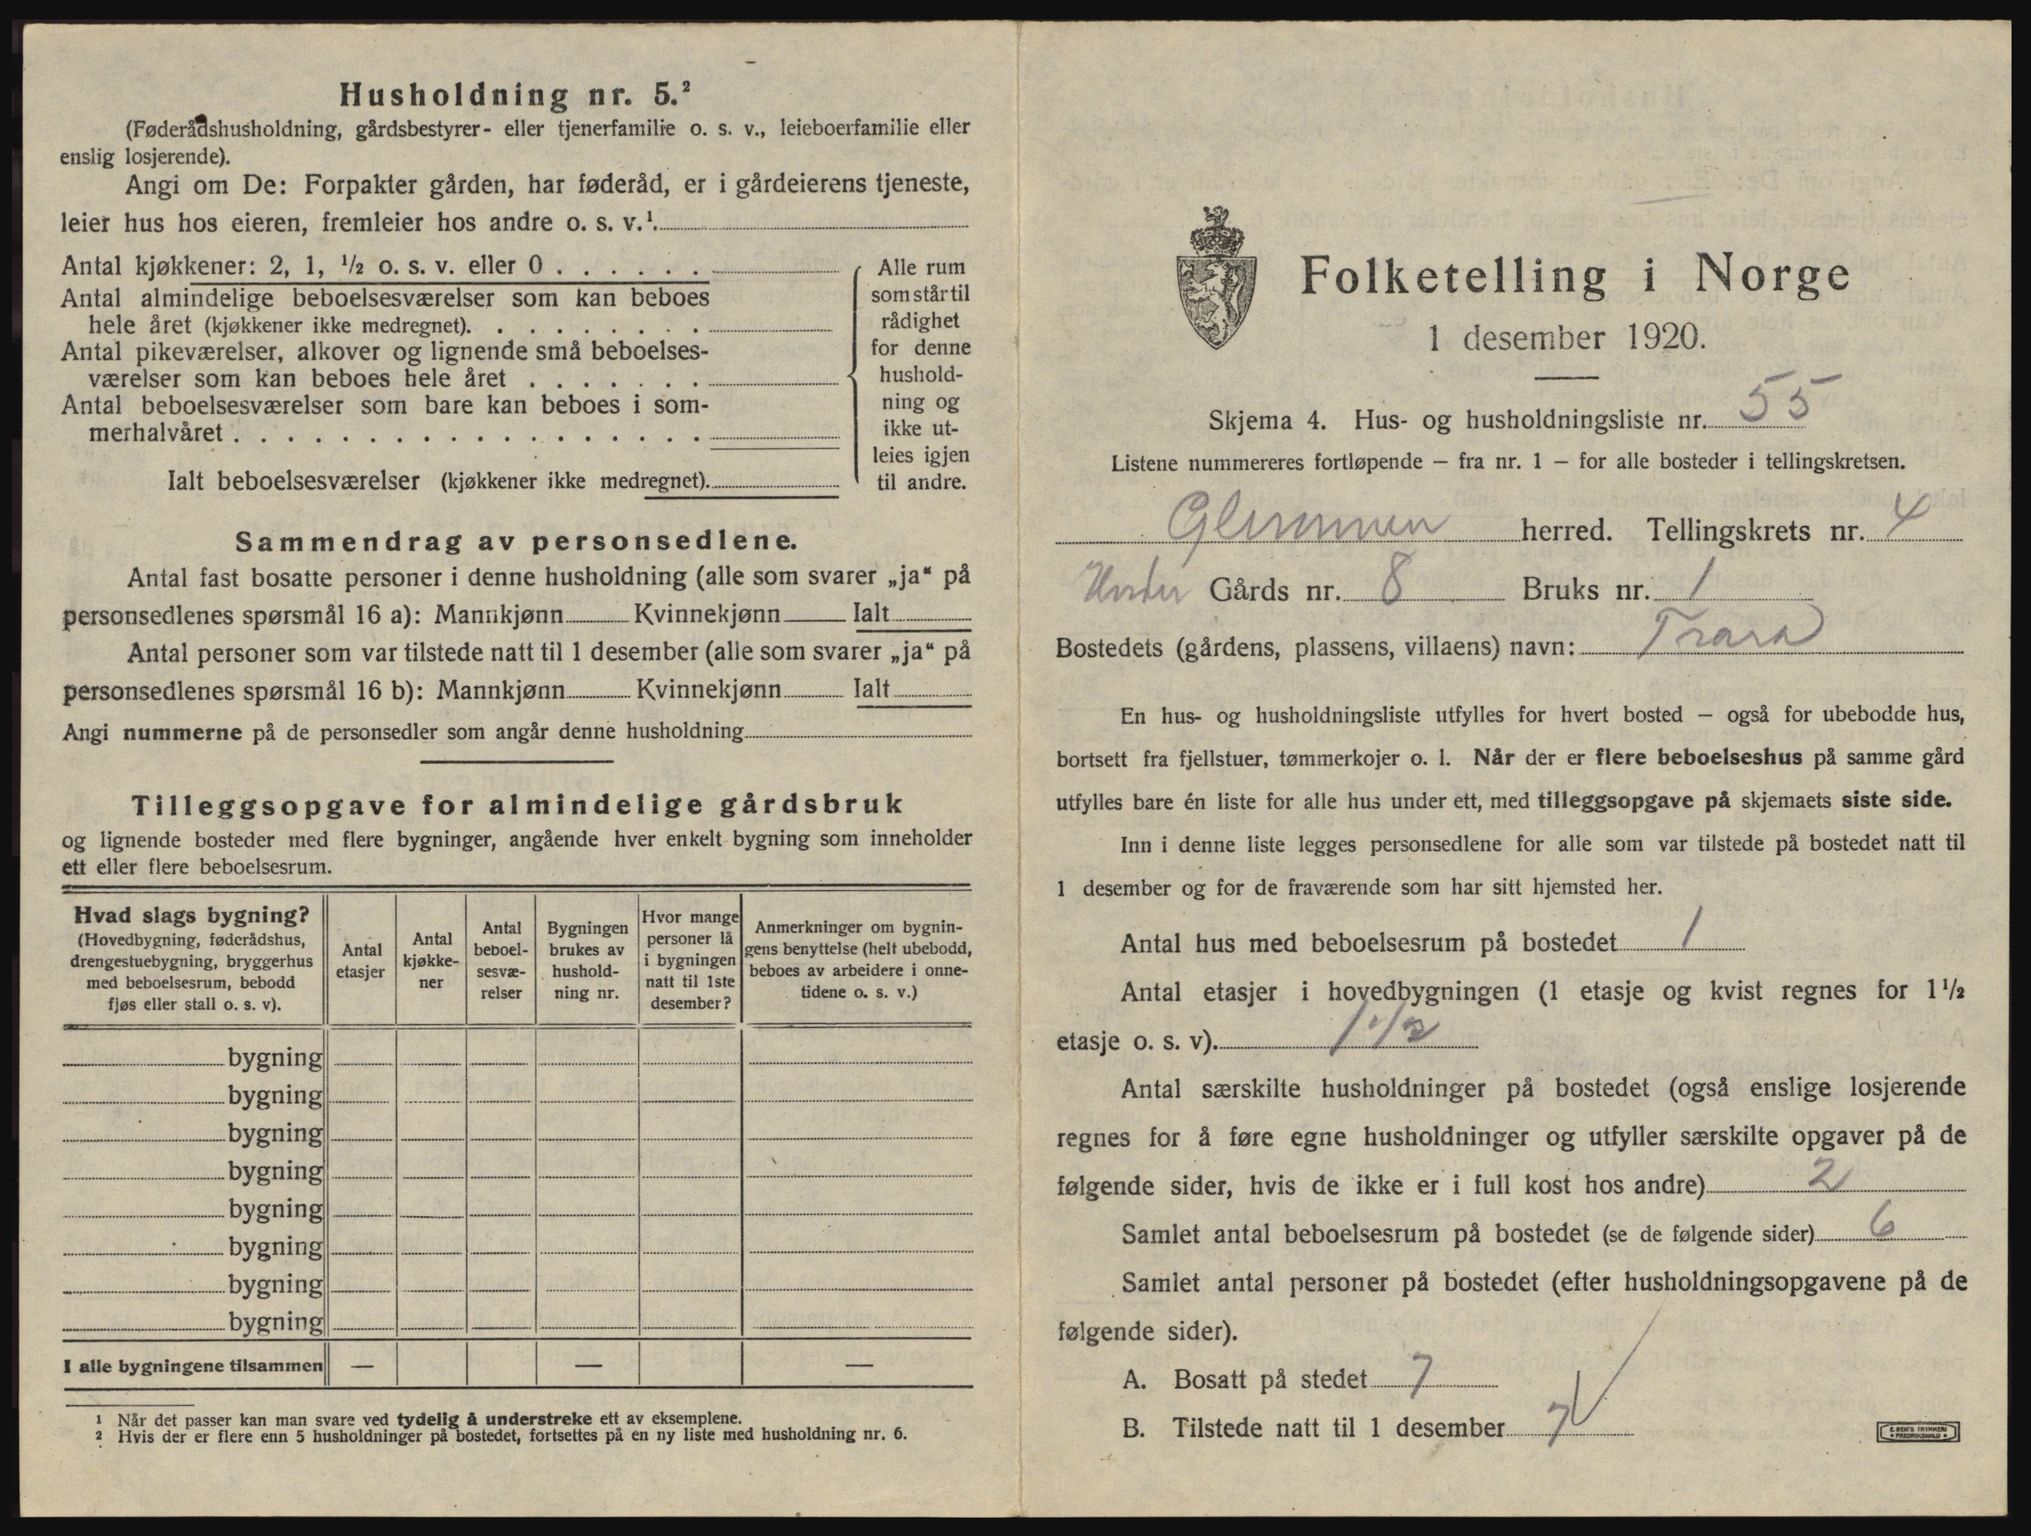 Husholdning nr. 5.²
(Føderådshusholdning, gårdsbestyrer- eller tjenerfamilie o. s. v., leieboerfamilie eller
enslig losjerende).
Angi om De: Forpakter gården, har føderåd, er i gårdeierens tjeneste,
leier hus hos eieren, fremleier hos andre o. s. v.¹.
Antal kjøkkener: 2, 1, ½ o. s. v. eller 0 . . . . . .
Antal almindelige beboelsesværelser som kan beboes
hele året (kjøkkener ikke medregnet). . . . . . . . .
Antal pikeværelser, alkover og lignende små beboelses-
værelser som kan beboes hele året . . . . . . .
Antal beboelsesværelser som bare kan beboes i som-
merhalvåret . . . . . . . . . . . . . . . . . .
Ialt beboelsesværelser (kjøkkener ikke medregnet).
Alle rum
som står til
rådighet
for denne
hushold-
ning og
ikke ut-
leies igjen
til andre.
Sammendrag av personsedlene.
Antal fast bosatte personer i denne husholdning (alle som svarer „ja“ på
personsedlenes spørsmål 16 a): Mannkjønn Kvinnekjønn Ialt
Antal personer som var tilstede natt til 1 desember (alle som svarer „ja“ på
personsedlenes spørsmål 16 b): Mannkjønn Kvinnekjønn Ialt
Angi nummerne på de personsedler som angår denne husholdning
Tilleggsopgave for almindelige gårdsbruk
og lignende bosteder med flere bygninger, angående hver enkelt bygning som inneholder
ett eller flere beboelsesrum.
Hvad slags bygning?
(Hovedbygning, føderådshus,
drengestuebygning, bryggerhus
med beboelsesrum, bebodd
fjøs eller stall o. s. v).
Antal
etasjer
Antal
kjøkke-
ner
Antal
beboel-
sesvæ-
relser
Bygningen
brukes av
hushold-
ning nr.
Hvor mange
personer lå
i bygningen
natt til 1ste
desember?
Anmerkninger om bygnin-
gens benyttelse (helt ubebodd,
beboes av arbeidere i onne-
tidene o. s. v.)
bygning
bygning
bygning
bygning
bygning
bygning
bygning
bygning
I alle bygningene tilsammen — — —
¹ Når det passer kan man svare ved tydelig å understreke ett av eksemplene.
² Hvis der er flere enn 5 husholdninger på bostedet, fortsettes på en ny liste med husholdning nr. 6.
Folketelling i Norge
1 desember 1920.
Skjema 4. Hus- og husholdningsliste nr. 55
Listene nummereres fortløpende – fra nr. 1 – for alle bosteder i tellingskretsen.
Glemmen herred. Tellingskrets nr. 4
Under Gårds nr. 8 Bruks nr. 1
Bostedets (gårdens, plassens, villaens) navn: Trara
En hus- og husholdningsliste utfylles for hvert bosted – også for ubebodde hus,
bortsett fra fjellstuer, tømmerkojer o. l. Når der er flere beboelseshus på samme gård
utfylles bare én liste for alle hus under ett, med tilleggsopgave på skjemaets siste side.
Inn i denne liste legges personsedlene for alle som var tilstede på bostedet natt til
1 desember og for de fraværende som har sitt hjemsted her.
Antal hus med beboelsesrum på bostedet 1
Antal etasjer i hovedbygningen (1 etasje og kvist regnes for 1½
etasje o. s. v). 1 1/2
Antal særskilte husholdninger på bostedet (også enslige losjerende
regnes for å føre egne husholdninger og utfyller særskilte opgaver på de
følgende sider, hvis de ikke er i full kost hos andre) 2
Samlet antal beboelsesrum på bostedet (se de følgende sider) 6
Samlet antal personer på bostedet (efter husholdningsopgavene på de
følgende sider).
A. Bosatt på stedet 7
B. Tilstede natt til 1 desember 7
E. SEM'S TRYKKERI
FREDRIKSHALD